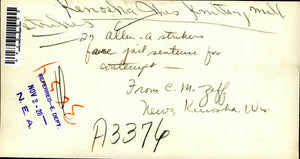 Kenosha Wis Knitting Mill
Strikes
27 Allen-A strikers
face jail sentence for
contempt
From C. M. Zeff
News, Kenosha, Wis
REFERRED-E. DEPT.
NOV 2-28
N. E. A.
A3376